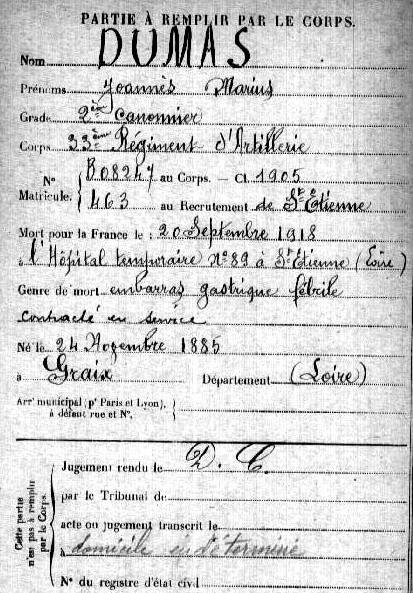 PARTIE À REMPLIR PAR LE CORPS.
Nom DUMAS
Prénoms Joannès Marius
Grade 2ème canonnier
Corps 33ème Régiment d'Artillerie
N° Matricule. { B08247 au Corps. — Cl. 1905
463 au Recrutement de St Etienne
Mort pour la France le : 20 Septembre 1918
à l'Hôpital temporaire N° 89 à St Etienne (Loire)
Genre de mort embarras gastrique fébrile
contracté en service
Né le 24 Novembre 1885
à Graix Département (Loire)
Arrt municipal (pr Paris et Lyon), à défaut rue et N°. {
Cette partie n'est pas à remplir par le Corps.
Jugement rendu le D. C.
par le Tribunal de
acte ou jugement transcrit le
à domicile indéterminé
N° du registre d'état civil